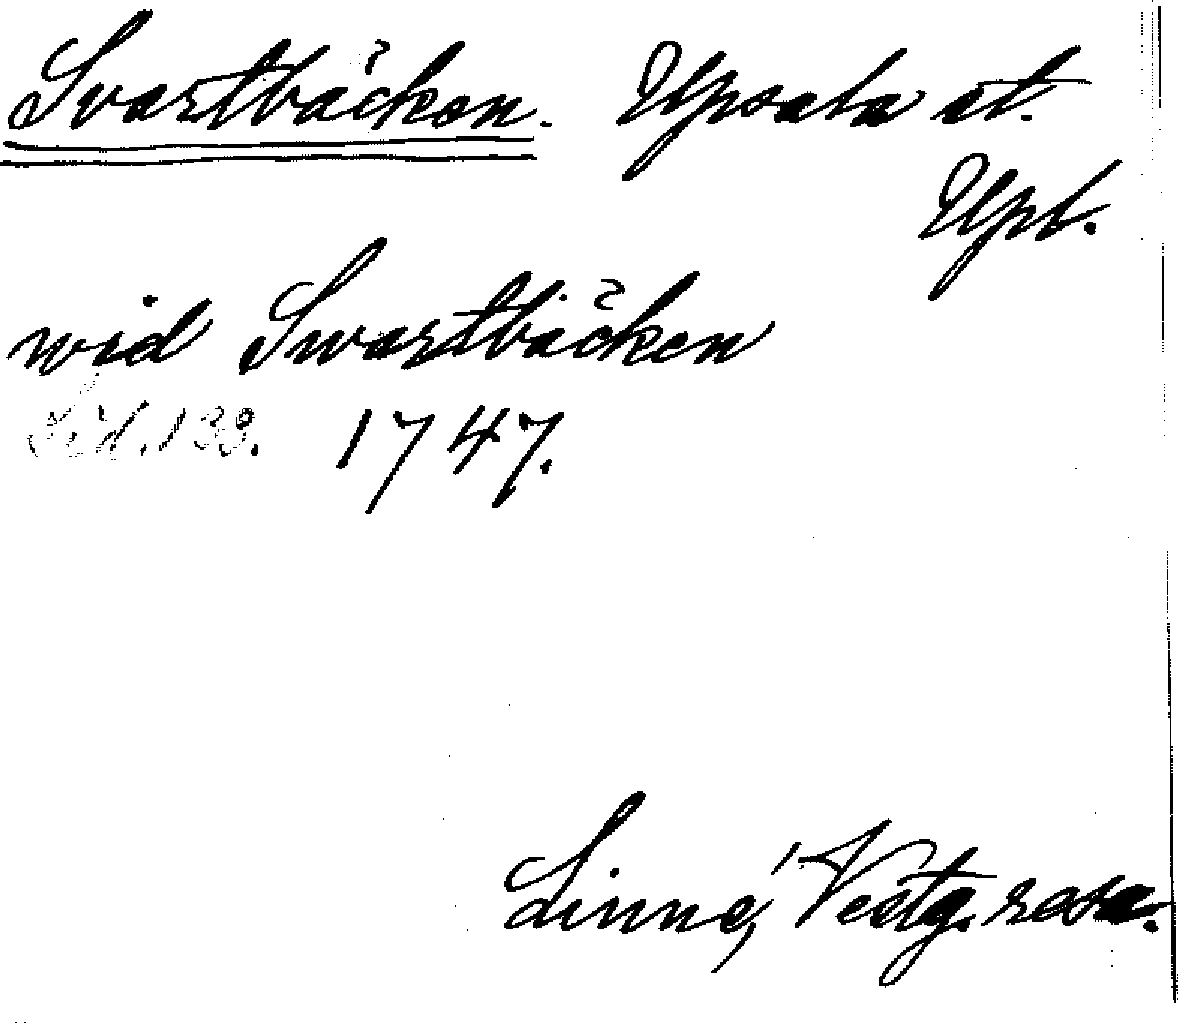 Svartbäcken. Upsala st.
Upl.
wid Swartbäcken
Sid. 139. 1747.
Linné, Vestg. resa.